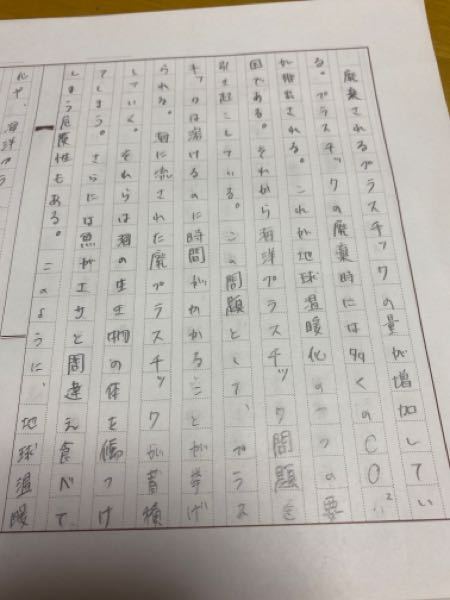 廃棄されるプラスチックの量が増加してい
る。プラスチックの廃棄時には多くのCO2
が排出される。これが地球温暖化の一つの要
因である。それから海洋プラスチック問題を
引き起こしている。この問題として、プラス
チックは溶けるのに時間がかかることが挙げ
られる。海に流された廃プラスチックが蓄積
していく。それらは海の生き物の体を傷つけ
てしまう。さらには魚がエサと間違え食べて
しまう危険性もある。このように、地球温暖
化や、海洋プラ